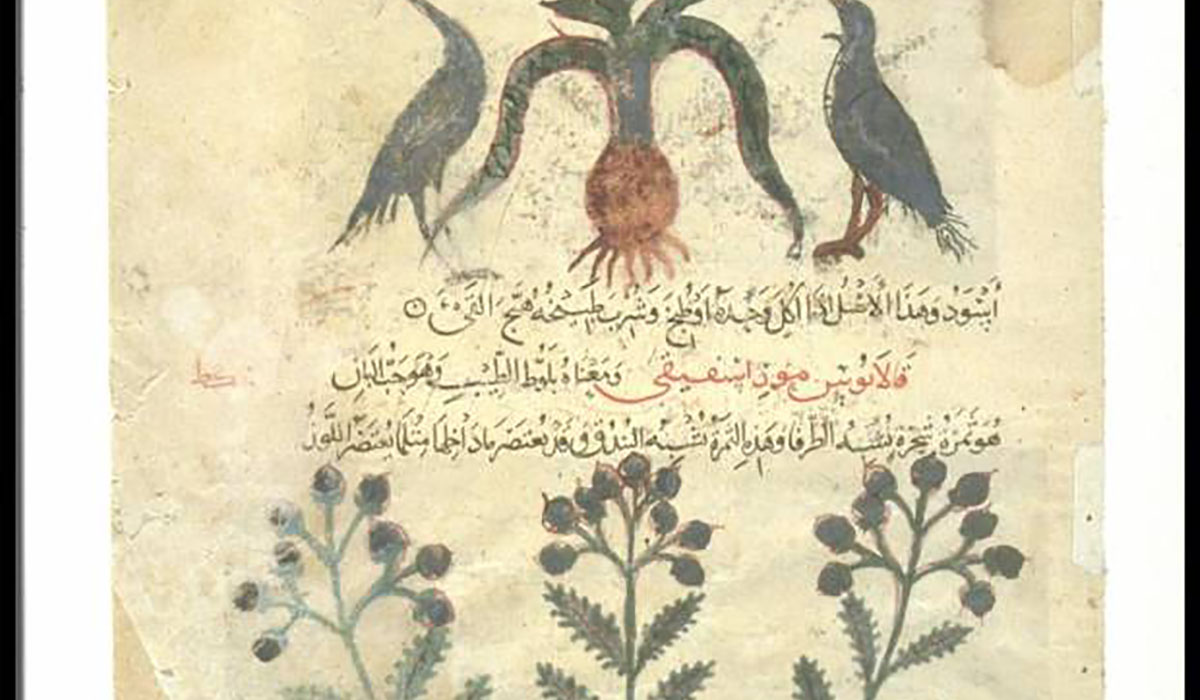 أسود وهذا الاصل اذا اكل وحده او طبخ وشرب طبيخه هيج القىء
ومعناه بلوط الطيب وهو حب البان
هو ثمرة شجرة تشبه الطرفا وهذه الثمرة تشبه البندق وقد يعتصر ما داخلها مثلما يعتصر اللوز